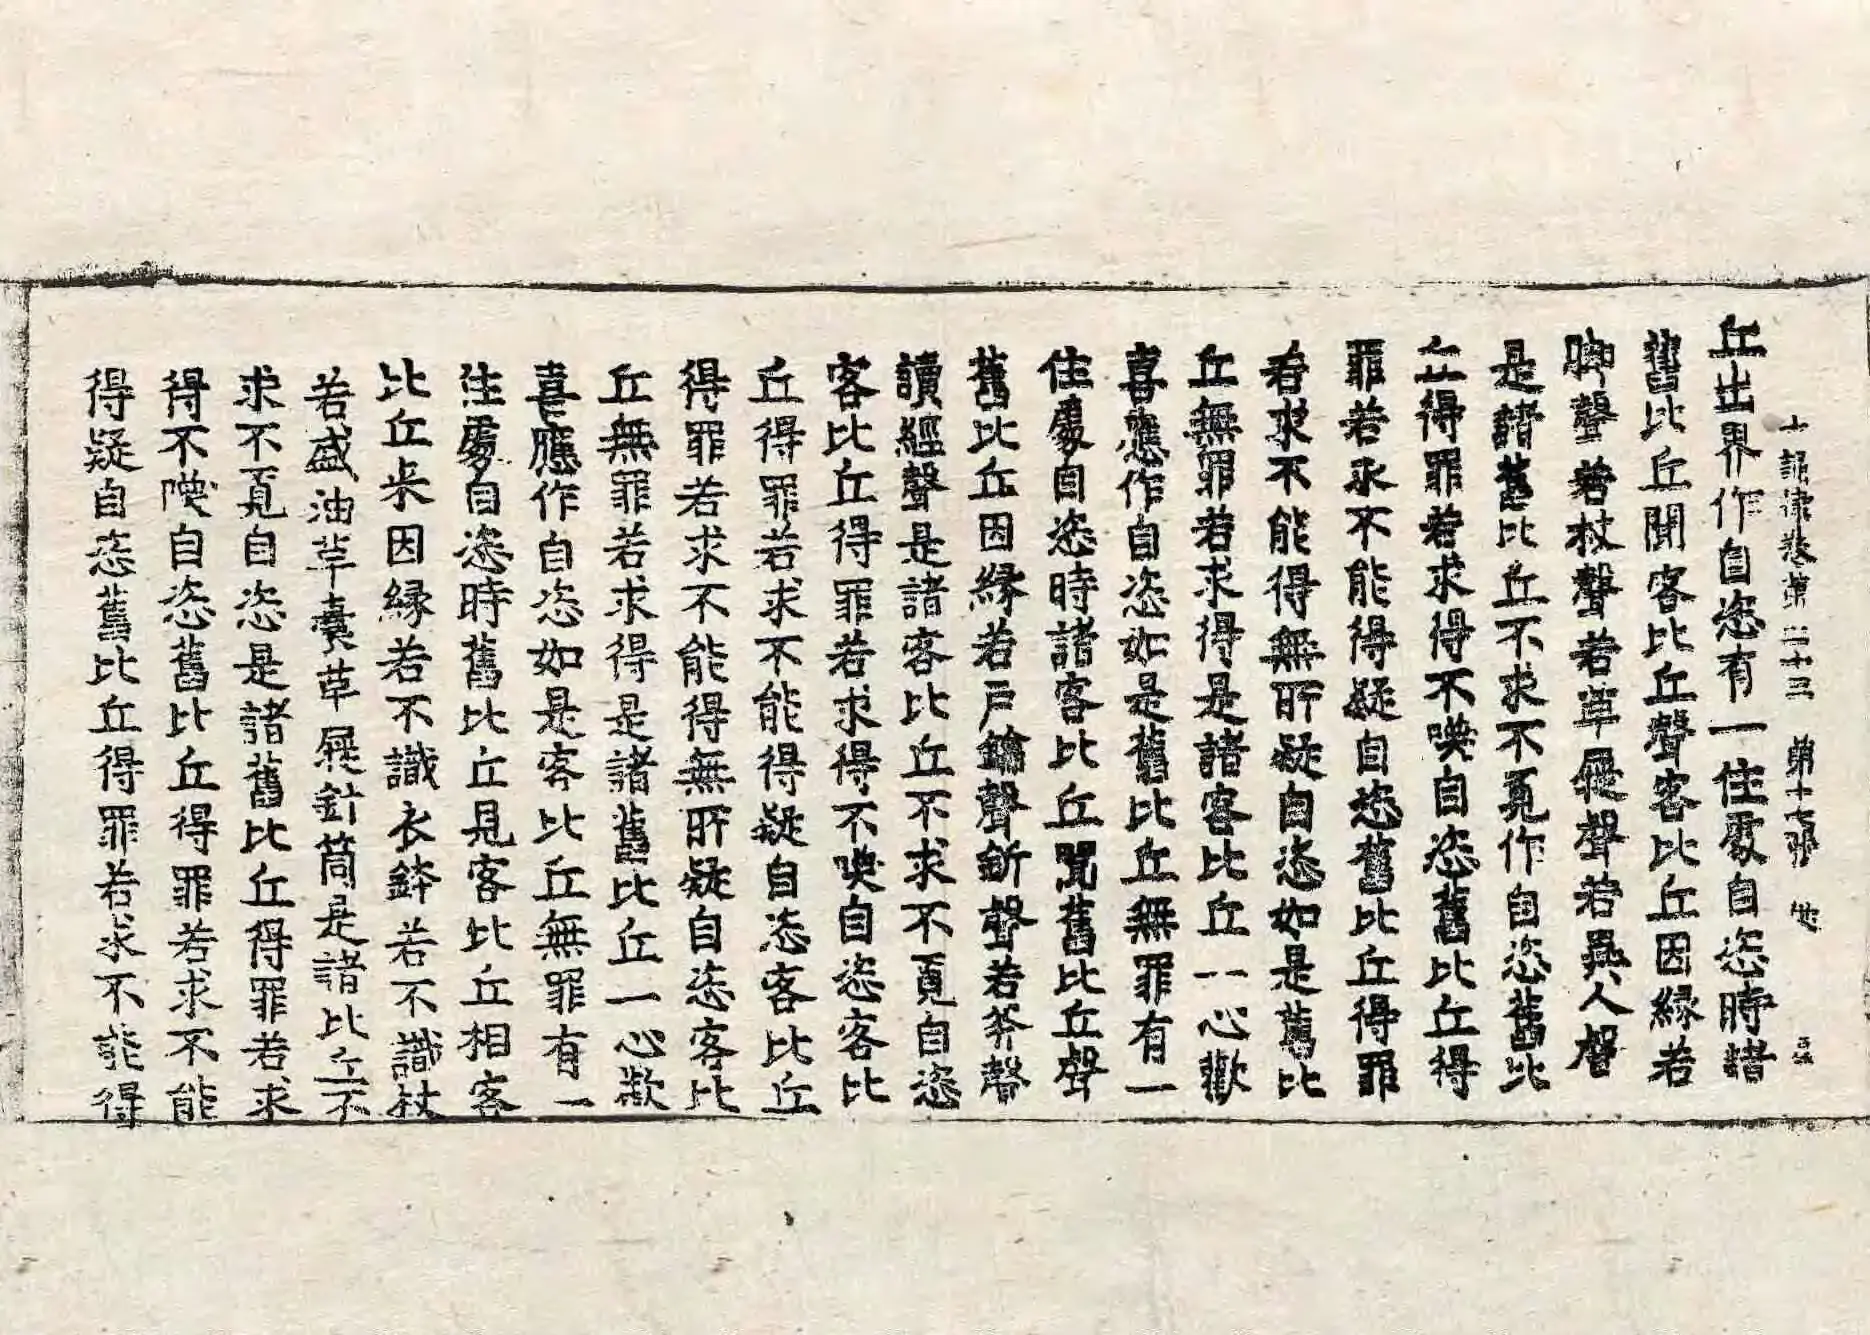 十誦律卷第二十三 第十七張
丘出界作自恣有一住處自恣時諸
舊比丘聞客比丘聲客比丘因縁若
脚聲若杖聲若革屣聲若異人聲
是諸舊比丘不求不覓作自恣舊比
丘得罪若求得不喚自恣舊比丘得
罪若求不能得疑自恣舊比丘得罪
若求不能得無所疑自恣如是舊比
丘無罪若求得是諸客比丘一心歡
喜應作自恣如是舊比丘無罪有一
住處自恣時諸客比丘聞舊比丘聲
舊比丘因縁若戶鑰聲釿聲若斧聲
讀經聲是諸客比丘不求不覓自恣
客比丘得罪若求得不喚自恣客比
丘得罪若求不能得疑自恣客比丘
得罪若求不能得無所疑自恣客比
丘無罪若求得是諸舊比丘一心歡
喜應作自恣如是客比丘無罪有一
住處自恣時舊比丘見客比丘相客
比丘因縁若不識衣鉢若不識杖
若盛油草囊革屣針筒是諸比丘不
求不覓自恣是諸舊比丘得罪若求
得不喚自恣舊比丘得罪若求不能
得疑自恣舊比丘得罪若求不能得